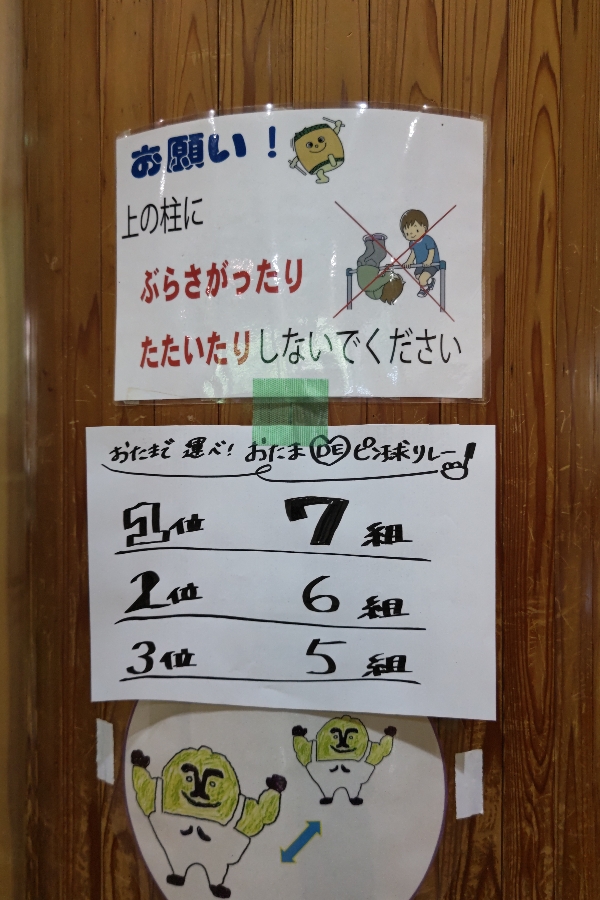 お願い！
上の柱に
ぶらさがったり
たたいたりしないでください
おたまで 運べ! おたま DE ピン球リレー
1位 7組
2位 6組
3位 5組